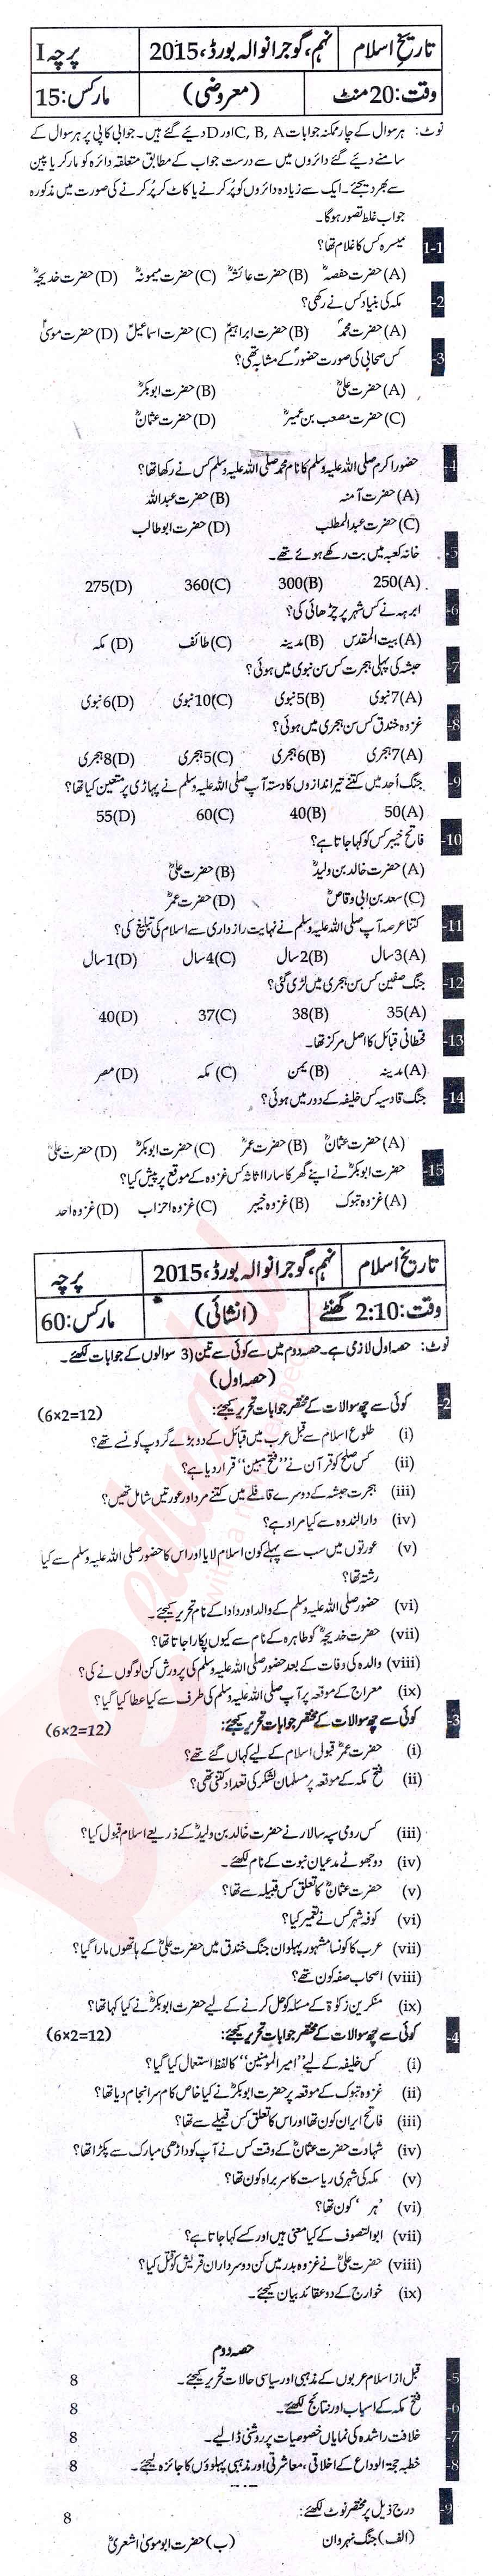 تاریخ اسلام نہم، گوجرانوالہ بورڈ، 2015 پرچہ I
وقت: 20 منٹ (معروضی) مارکس: 15
نوٹ: ہر سوال کے چار ممکنہ جوابات C, B, A اور D دیئے گئے ہیں۔ جوابی کاپی پر ہر سوال کے
سامنے دیئے گئے دائروں میں سے درست جواب کے مطابق متعلقہ دائرہ کو مارکر یا پین
سے بھر دیجئے۔ ایک سے زیادہ دائروں کو پُر کرنے یا کاٹ کر پُر کرنے کی صورت میں مذکورہ
جواب غلط تصور ہوگا۔
1-1 میسرہ کس کا غلام تھا؟
(A) حضرت حفصہؓ (B) حضرت عائشہؓ (C) حضرت میمونہؓ (D) حضرت خدیجہؓ
-2 مکہ کی بنیاد کس نے رکھی؟
(A) حضرت محمدؐ (B) حضرت ابراہیمؑ (C) حضرت اسماعیلؑ (D) حضرت موسیٰؑ
-3 کس صحابی کی صورت حضورؐ کے مشابہ تھی؟
(A) حضرت علیؓ (B) حضرت ابوبکرؓ
(C) حضرت مصعب بن عمیرؓ (D) حضرت عثمانؓ
-4 حضور اکرم صلی اللہ علیہ وسلم کا نام محمد صلی اللہ علیہ وسلم کس نے رکھا تھا؟
(A) حضرت آمنہ (B) حضرت عبداللہ
(C) حضرت عبدالمطلب (D) حضرت ابو طالب
-5 خانہ کعبہ میں بت رکھے ہوئے تھے۔
250(A) 300(B) 360(C) 275(D)
-6 ابرہہ نے کس شہر پر چڑھائی کی؟
(A) بیت المقدس (B) مدینہ (C) طائف (D) مکہ
-7 حبشہ کی پہلی ہجرت کس سن نبوی میں ہوئی؟
(A) 7 نبوی (B) 5 نبوی (C) 10 نبوی (D) 6 نبوی
-8 غزوہ خندق کس سن ہجری میں ہوئی؟
(A) 7 ہجری (B) 6 ہجری (C) 5 ہجری (D) 8 ہجری
-9 جنگ اُحد میں کتنے تیر اندازوں کا دستہ آپ صلی اللہ علیہ وسلم نے پہاڑی پر متعین کیا تھا؟
50(A) 40(B) 60(C) 55(D)
-10 فاتح خیبر کس کو کہا جاتا ہے؟
(A) حضرت خالد بن ولیدؓ (B) حضرت علیؓ
(C) سعد بن ابی وقاصؓ (D) حضرت عمرؓ
-11 کتنا عرصہ آپ صلی اللہ علیہ وسلم نے نہایت رازداری سے اسلام کی تبلیغ کی؟
(A) 3 سال (B) 2 سال (C) 4 سال (D) 1 سال
-12 جنگ صفین کس سن ہجری میں لڑی گئی؟
35(A) 38(B) 37(C) 40(D)
-13 قحطانی قبائل کا اصل مرکز تھا۔
(A) مدینہ (B) یمن (C) مکہ (D) مصر
-14 جنگ قادسیہ کس خلیفہ کے دور میں ہوئی؟
(A) حضرت عثمانؓ (B) حضرت عمرؓ (C) حضرت ابوبکرؓ (D) حضرت علیؓ
-15 حضرت ابوبکرؓ نے اپنے گھر کا سارا اثاثہ کس غزوہ کے موقع پر پیش کیا؟
(A) غزوہ تبوک (B) غزوہ خیبر (C) غزوہ احزاب (D) غزوہ احد
تاریخ اسلام نہم، گوجرانوالہ بورڈ، 2015 پرچہ
وقت: 2:10 گھنٹے (انشائی) مارکس: 60
نوٹ: حصہ اول لازمی ہے۔ حصہ دوم میں سے کوئی سے تین (3) سوالوں کے جوابات لکھئے۔
(حصہ اول)
-2 کوئی سے چھ سوالات کے مختصر جوابات تحریر کیجئے: (6x2=12)
(i) طلوع اسلام سے قبل عرب میں قبائل کے دو بڑے گروپ کونسے تھے؟
(ii) کس صلح کو قرآن نے "فتح مبین" قرار دیا ہے؟
(iii) ہجرت حبشہ کے دوسرے قافلے میں کتنے مرد اور عورتیں شامل تھیں؟
(iv) دارالندوہ سے کیا مراد ہے؟
(v) عورتوں میں سب سے پہلے کون اسلام لایا اور اس کا حضور صلی اللہ علیہ وسلم سے کیا
رشتہ تھا؟
(vi) حضور صلی اللہ علیہ وسلم کے والد اور دادا کے نام تحریر کیجئے۔
(vii) حضرت خدیجہؓ کو طاہرہ کے نام سے کیوں پکارا جاتا تھا؟
(viii) والدہ کی وفات کے بعد حضور صلی اللہ علیہ وسلم کی پرورش کن لوگوں نے کی؟
(ix) معراج کے موقعہ پر آپ صلی اللہ علیہ وسلم کی طرف سے کیا عطا کیا گیا؟
-3 کوئی سے چھ سوالات کے مختصر جوابات تحریر کیجئے: (6x2=12)
(i) حضرت عمرؓ قبول اسلام کے لیے کہاں گئے تھے؟
(ii) فتح مکہ کے موقعہ پر مسلمان لشکر کی تعداد کتنی تھی؟
(iii) کس رومی سپہ سالار نے حضرت خالد بن ولیدؓ کے ذریعے اسلام قبول کیا؟
(iv) دو جھوٹے مدعیان نبوت کے نام لکھئے۔
(v) حضرت عثمانؓ کا تعلق کس قبیلہ سے تھا؟
(vi) کوفہ شہر کس نے تعمیر کیا؟
(vii) عرب کا کونسا مشہور پہلوان جنگ خندق میں حضرت علیؓ کے ہاتھوں مارا گیا؟
(viii) اصحاب صفہ کون تھے؟
(ix) منکرین زکوٰۃ کے مسئلہ کو حل کرنے کے لیے حضرت ابوبکرؓ نے کیا کہا تھا؟
-4 کوئی سے چھ سوالات کے مختصر جوابات تحریر کیجئے: (6x2=12)
(i) کس خلیفہ کے لیے "امیر المؤمنین" کا لفظ استعمال کیا گیا؟
(ii) غزوہ تبوک کے موقعہ پر حضرت ابوبکرؓ نے کیا خاص کام سرانجام دیا تھا؟
(iii) فاتح ایران کون تھا اور اس کا تعلق کس قبیلے سے تھا؟
(iv) شہادت حضرت عثمانؓ کے وقت کس نے آپ کو داڑھی مبارک سے پکڑا تھا؟
(v) مکہ کی شہری ریاست کا سربراہ کون تھا؟
(vi) 'ہر' کون تھا؟
(vii) ابوالتصوف کے کیا معنی ہیں اور کسے کہا جاتا ہے؟
(viii) حضرت علیؓ نے غزوہ بدر میں کن دو سرداران قریش کو قتل کیا؟
(ix) خوارج کے دو عقائد بیان کیجئے۔
حصہ دوم
-5 قبل از اسلام عربوں کے مذہبی اور سیاسی حالات تحریر کیجئے۔ 8
-6 فتح مکہ کے اسباب اور نتائج لکھئے۔ 8
-7 خلافت راشدہ کی نمایاں خصوصیات پر روشنی ڈالیے۔ 8
-8 خطبہ حجۃ الوداع کے اخلاقی، معاشرتی اور مذہبی پہلوؤں کا جائزہ لیجئے۔ 8
-9 درج ذیل پر مختصر نوٹ لکھئے: 8
(الف) جنگ نہروان (ب) حضرت ابو موسیٰ اشعریؓ